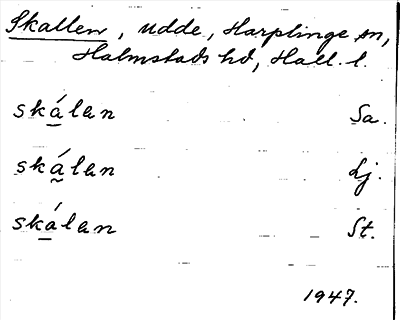 Skallen, udde, Harplinge sn,
Halmstads hd, Hall. l.
ská̱lan Sa.
ská̰lan Lj.
ská̱lan St.
1947.